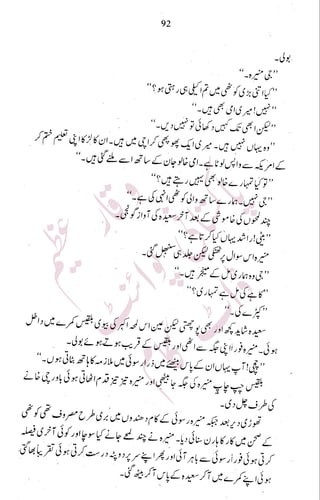 92
بولی۔
’’جی منیرہ۔‘‘
’’کیا اتنی بڑی کوٹھی میں تم اکیلی ہی رہتی ہو؟‘‘
’’نہیں! میری امی بھی ہیں۔‘‘
’’لیکن ابھی تک کہیں دکھائی تو نہیں دیں۔‘‘
’’وہ یہاں نہیں ہیں۔ میری ایک پھوپھی کراچی میں ہیں۔ ان کا لڑکا اپنی تعلیم ختم کر
کے امریکہ سے واپس لوٹا ہے۔ امی خالو جان کے ساتھ اسے ملنے گئی ہیں۔‘‘
’’تو کیا تمہارے خالو بھی یہیں رہتے ہیں؟‘‘
’’جی نہیں۔ ہمارے ساتھ والی کوٹھی انہی کی ہے۔‘‘
چند لمحوں کی خاموشی کے بعد آخر سعیدہ کی آواز گونجی۔
’’بیٹی! راشد یہاں کیا کرتا ہے؟‘‘
منیرہ اس سوال پر ٹھٹکی لیکن جلد ہی سنبھل گئی۔
’’جی وہ ہماری مل کے مینجر ہیں۔‘‘
’’کاہے کی مل ہے تمہاری؟‘‘
’’کپڑے کی۔‘‘
سعیدہ شاید کچھ اور بھی پوچھتی لیکن عین اس لمحہ اکبر کی بیوی بلقیس کمرے میں داخل
ہوئی۔ منیرہ فوراً اپنی جگہ سے اٹھی اور بلقیس کے قریب ہوتے ہوئے بولی۔
’’چچی! آپ یہاں ان کے پاس بیٹھئے میں ذرا رسوئی میں ملازمہ کا ہاتھ بٹاتی ہوں۔‘‘
بلقیس چپ چاپ منیرہ کی جگہ جا بیٹھی اور منیرہ تیز تیز قدم اٹھاتی ہوئی باورچی خانے
کی طرف چل دی۔
تھوڑی دیر بعد جبکہ منیرہ رسوئی کے کام دھندوں میں بری طرح مصروف تھی کوٹھی
کے صحن میں کار کا ہارن سنائی دیا۔ منیرہ نے چند لمحے جانے کیا سوچا اور کوئی آخری فیصلہ
کرتی ہوئی فوراً رسوئی سے باہر آئی اور پھر اپنے سر پر دوپٹہ درست کرتی ہوئی تقریباً بھاگتی
ہوئی اپنے کمرے میں آ کر سعیدہ کے پاس آ کر بیٹھ گئی۔